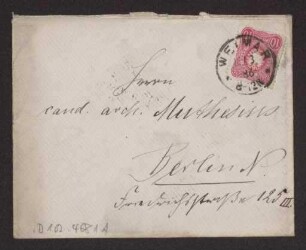 WEIMAR
8-12V
Herrn
cand. arch. Muthesius
Berlin N.
Friedrichstraße 125 III
D 102-4681 d